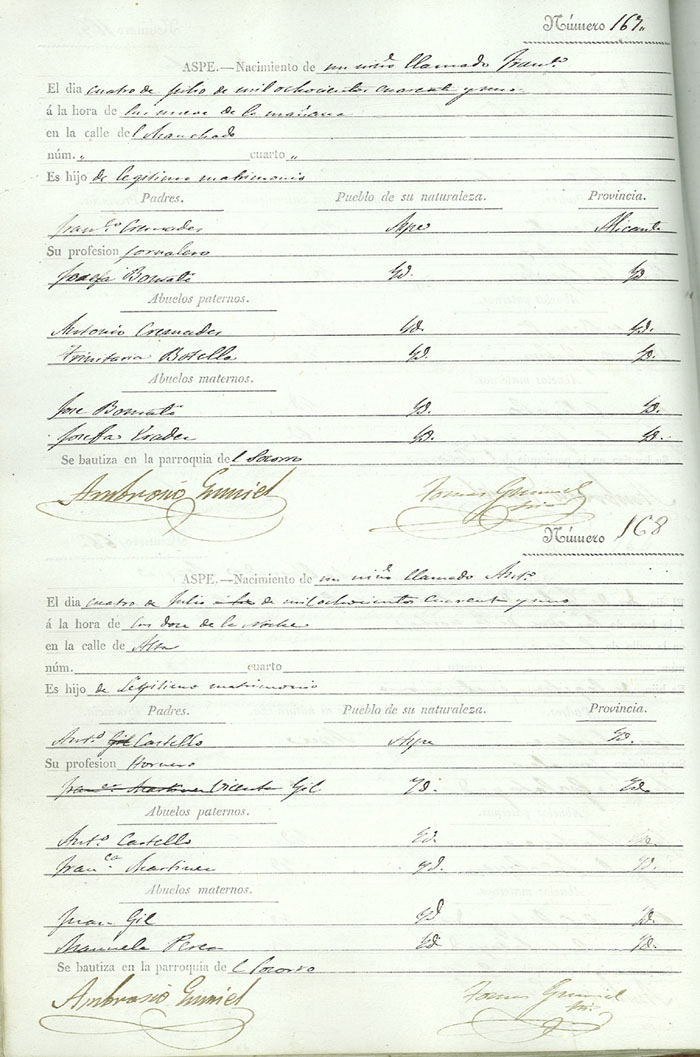 Número 167.
ASPE.—Nacimiento de un niño llamado Franco.
El dia cuatro de Julio de mil ochocientos cuarenta y uno
á la hora de las nueve de la mañana
en la calle del Manchado
núm. „ cuarto „
Es hijo de legitimo matrimonio
Padres. Pueblo de su naturaleza. Provincia.
Franco. Cremades Aspe Alicante
Su profesion Jornalero
Josefa Bonmati Yd. Yd
Abuelos paternos.
Antonio Cremades Yd. Yd.
Trinitaria Botella Yd. Yd.
Abuelos maternos.
Jose Bonmati Yd. Yd.
Joseffa Yd. Yd.
Se bautiza en la parroquia del Socorro
Ambrosio Gumiel Tomas Gumiel
Número 168
ASPE.—Nacimiento de un niño llamado Anto.
El dia cuatro de Julio de mil ochocientos cuarenta y uno
á la hora de las doce de la noche
en la calle de
núm. cuarto
Es hijo de Legitimo matrimonio
Padres. Pueblo de su naturaleza. Provincia.
Anto. Gil Castello Aspe Yd.
Su profesion Hornero
Franca. Martinez Vicenta Gil Yd. Yd
Abuelos paternos.
Anto. Castello Yd. Yd.
Franca. Martinez Yd. Yd.
Abuelos maternos.
Juan Gil Yd Yd.
Manuela Yd Yd.
Se bautiza en la parroquia del Socorro
Ambrosio Gumiel Tomas Gumiel